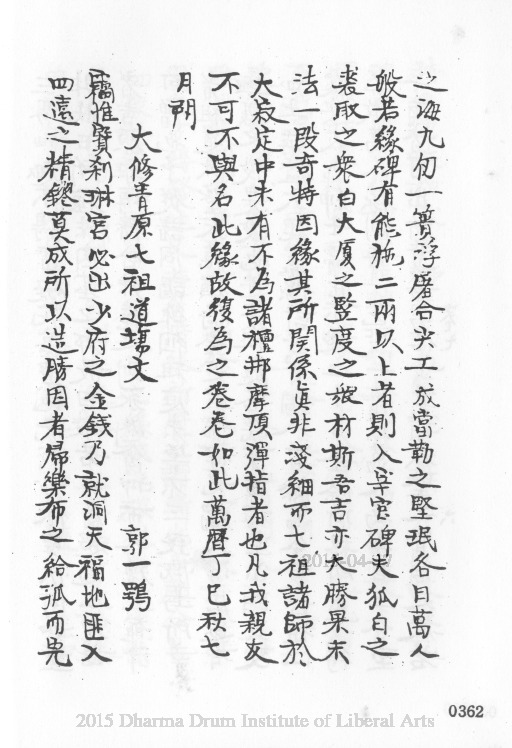 之海九仞一簣浮屠合尖工放當勒之堅珉各曰萬人
般若緣碑有能施二兩以上者則入宰官碑夫狐白之
裘取之衆白大厦之豎度之衆材斯吾吉亦大勝果末
法一段奇特因緣其所關係眞非淺細而七祖諸師於
大寂定中未有不為諸檀那摩頂彈指者也凡我親友
不可不與名此緣故復為之卷卷如此萬曆丁巳秋七
月朔
大修青原七祖道塲文 郭一鶚
竊惟寶刹琳宮必出少府之金錢乃就洞天福地匪入
四遠之精鏐莫成所以造勝因者歸樂布之給孤而先
0362
2015 Dharma Drum Institute of Liberal Arts